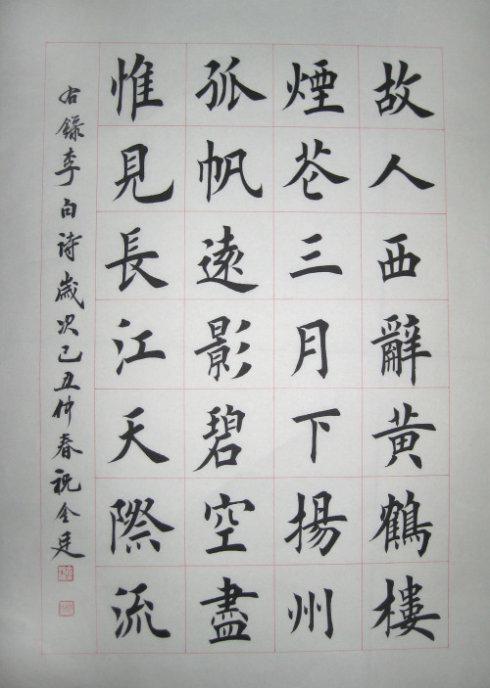 故人西辭黃鶴樓
煙花三月下揚州
孤帆遠影碧空盡
惟見長江天際流
右錄李白詩歲次己丑仲春祝金廷